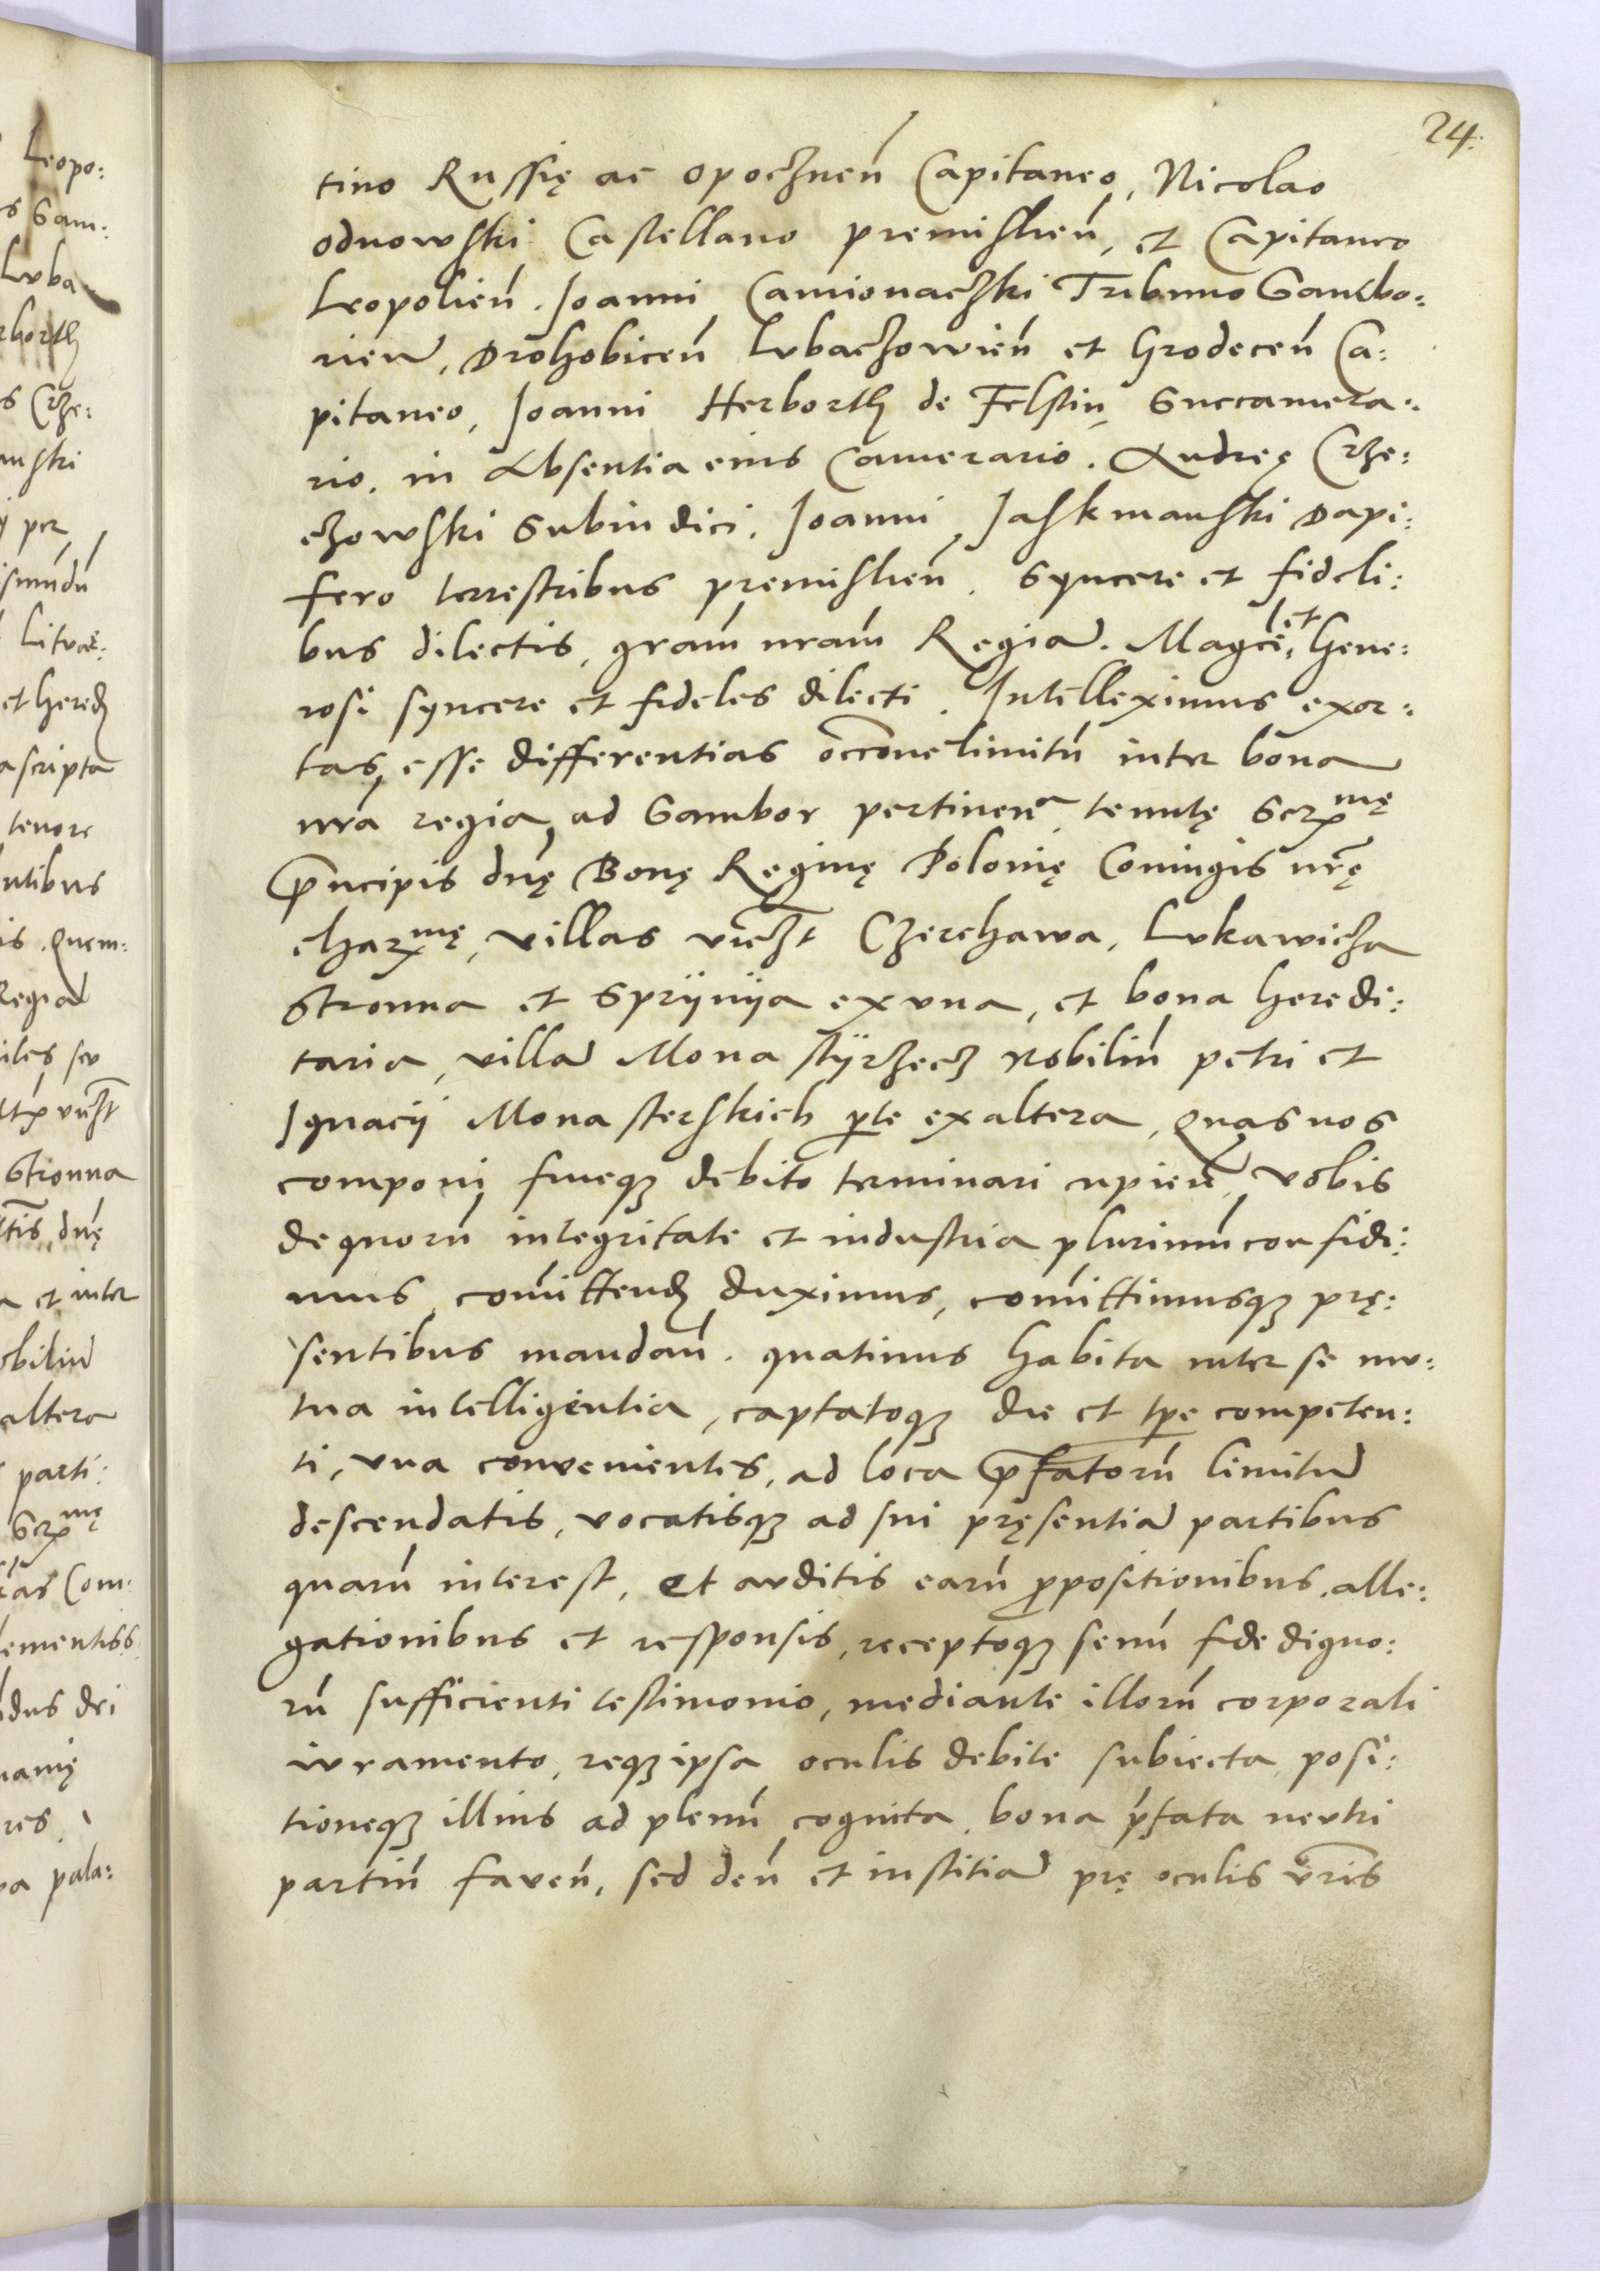 24.
tino Russię ac opocznen̄ Capitaneo, Nicolao
odnowski Castellano premislien̄, et Capitaneo
Leopolien̄. Joanni Camionaczki Tribuno Sambo:
rien̄, Drohobicen̄ Lvbaczowien̄ et Grodecen̄ Ca:
pitaneo, Joanni Herborth de Felstin, Succamera:
rio, in Absentia eius Camerario. Andreę Crze:
czowski Subiudici, Joanni Jaskmanski Dapi:
fero terrestribus premislien̄. Syncere et fideli:
bus dilectis, gram̄ nram̄ Regiam̄. Magci, et Gene:
rosi syncere et fideles dilecti. Intelleximus exor:
tas esse differentias occ̄one limitū inter bona
nrā regia ad Sambor pertineñ. tenutę Serᵐę
Principis dnę Bonę Reginę Polonię Coniugis nrę
charᵐę, villas vīczt Czerchawa, Lvkawicza
Stronna et Sprÿnÿa ex vna, et bona heredi:
taria, villam̄ Monastÿrzecz Nobiliū petri et
Ignacÿ Monasterskich pte ex altera, Quas nos
componi fineqz debito terminari cupien̄, vobis
de quorū integritate et industria plurimū confidi:
mus, com̄ittend duximus, com̄ittimusqz prę:
sentibus mandan̄. quatinus habita inter se mu:
tua intelligentia, captatoqz die et tpe competen:
ti, vna convenientes, ad loca pfatorū limitū
descendatis, vocatisqz ad sui pręsentiam̄ partibus
quarū interest, et avditis earū ppositionibus, alle:
gationibus et responsis, receptoqz senū fide digno:
rū sufficienti testimonio, mediante illorū corporali
ivramento, reqz ipsa oculis debite subiecta, posi:
tioneqz illius ad plenū cognita, bona pfata nevtri
partiū faven̄, sed deū et iustitiam̄ prę oculis vris